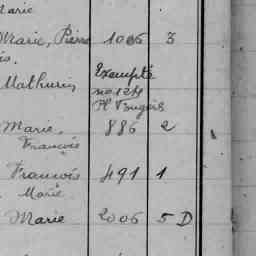 Marie
Marie, Pierre 1006 3
is.
Mathurin Exempté
no 124
Pl
Marie, 886 2
François
François 491 1
Marie
Marie 2006 5 D